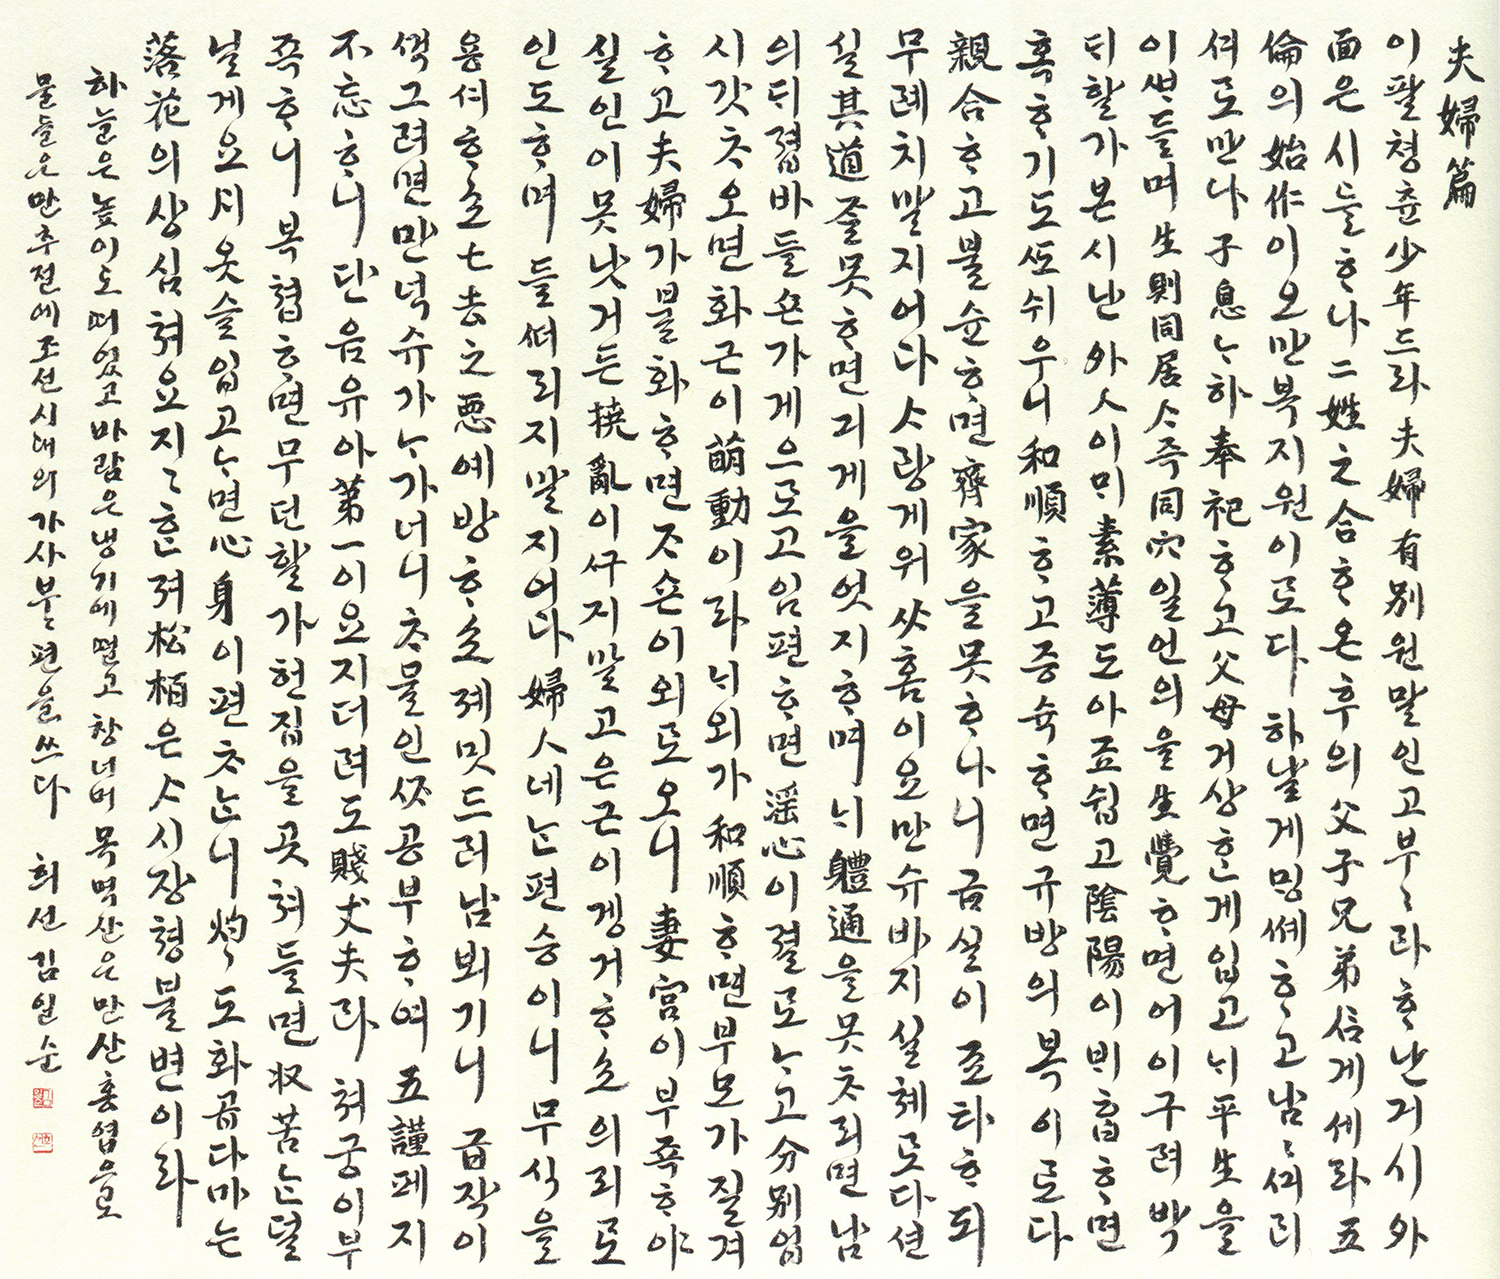 夫婦篇
이팔청츈少年드라夫婦有別원말인고부〻라ᄒᆞ난거시外
面은시들ᄒᆞ나二姓之合ᄒᆞ온후의父子兄弟信게세라五
倫의始作이오만복지원이로다하ᄂᆞᆯ게ᄆᆡᆼ셰ᄒᆞ고남〻ᄭᅴ리
셔로만나子息ᄂᆞᆫ하奉祀ᄒᆞ고父母거상ᄒᆞᆫ게입고ᄂᆡ平生을
이ᄲᅥ들며生則同居ᄉᆞ즉同穴일언의을生覺ᄒᆞ면어이구려박
ᄃᆡ할가본시난外人이ᄆᆡ素薄도아죠쉽고陰陽이ᄇᆡ흡ᄒᆞ면
혹ᄒᆞ기도ᄯᅩ쉬우니和順ᄒᆞ고증슉ᄒᆞ면규방의복이로다
親合ᄒᆞ고불슌ᄒᆞ면齊家을못ᄒᆞ나니금실이죠타ᄒᆞ되
무례치말지어다ᄉᆞ랑게워ᄊᆞ홈이요만슈바지실혜로다션
실其道줄못ᄒᆞ면괴게을엇지ᄒᆞ며ᄂᆡ體通을못ᄎᆞ리면남
의ᄃᆡ졉바들손가게으르고임편ᄒᆞ면淫心이졀로ᄂᆞ고分別업
시갓ᄎᆞ오면화근이萌動이라ᄂᆡ외가和順ᄒᆞ면부모가질겨
ᄒᆞ고夫婦가불화ᄒᆞ면ᄌᆞ손이외로오니妻宮이부죡ᄒᆞ야
실인이못낫거든撓亂이구지말고은근이겡거ᄒᆞ소의리로
인도ᄒᆞ며들ᄯᅥ리지말지어다婦人네ᄂᆞᆫ편승이니무식을
용셔ᄒᆞ소七去之惡예방ᄒᆞ소졔밋드러남뵈기니급작이
ᄉᆡᆨ그려면만넉슈가ᄂᆞᆫ가너니ᄎᆞ물인ᄉᆞ공부ᄒᆞ여五謹폐지
不忘ᄒᆞ니단음유아第一이요지더려도賤丈夫라쳐궁이부
죡ᄒᆞ니복쳡ᄒᆞ면무던할가헌집을곳쳐들면収苦ᄂᆞᆫ덜
ᄂᆞᆯ게요ᄉᆡ옷슬입고ᄂᆞ면心身이편ᄎᆞᄂᆞ니灼〻도화곱다마는
落花의상심혀요지〻ᄒᆞᆫ져松栢은ᄉᆞ시장형불변이라
하늘은높이도떠있고바람은냉기에떨고창너머목멱산은만산홍엽으로
물들은만추전에조선시대의가사부분편을쓰다 희선김일순